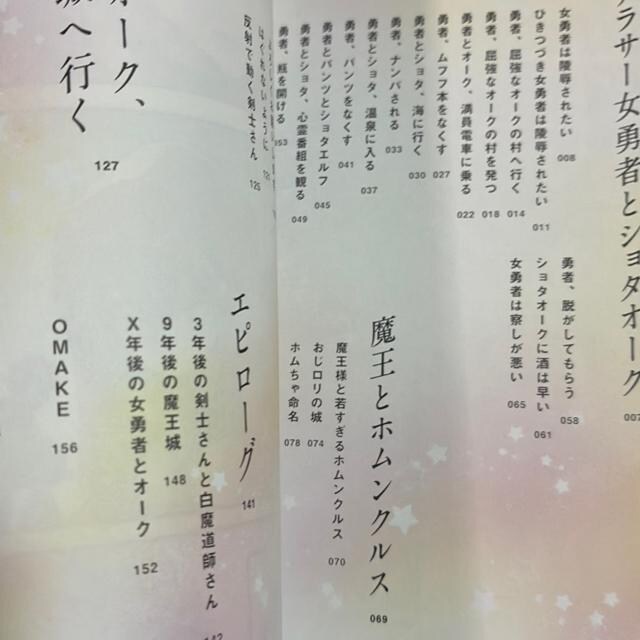 ラサー女勇者とショタオーク 007
女勇者は陵辱されたい 008
ひきつづき女勇者は陵辱されたい 011
勇者、屈強なオークの村へ行く 014
勇者、屈強なオークの村を発つ 018
勇者とオーク、満員電車に乗る 022
勇者、ムフフ本をなくす 027
勇者とショタ、海に行く 030
勇者、ナンパされる 033
勇者とショタ、温泉に入る 037
勇者、パンツをなくす 041
勇者とパンツとショタエルフ 045
勇者とショタ、心霊番組を観る 049
勇者、瓶を開ける 053
勇者、脱がしてもらう 058
ショタオークに酒は早い 061
女勇者は察しが悪い 065
魔王とホムンクルス 069
魔王様と若すぎるホムンクルス 070
おじロリの城 074
ホムちゃ命名 078
はぐれないように 12
反射で動く剣士さん 125
オーク、
へ行く 127
エピローグ 141
3年後の剣士さんと白魔道師さん 142
9年後の魔王城 148
X年後の女勇者とオーク 152
OMAKE 156